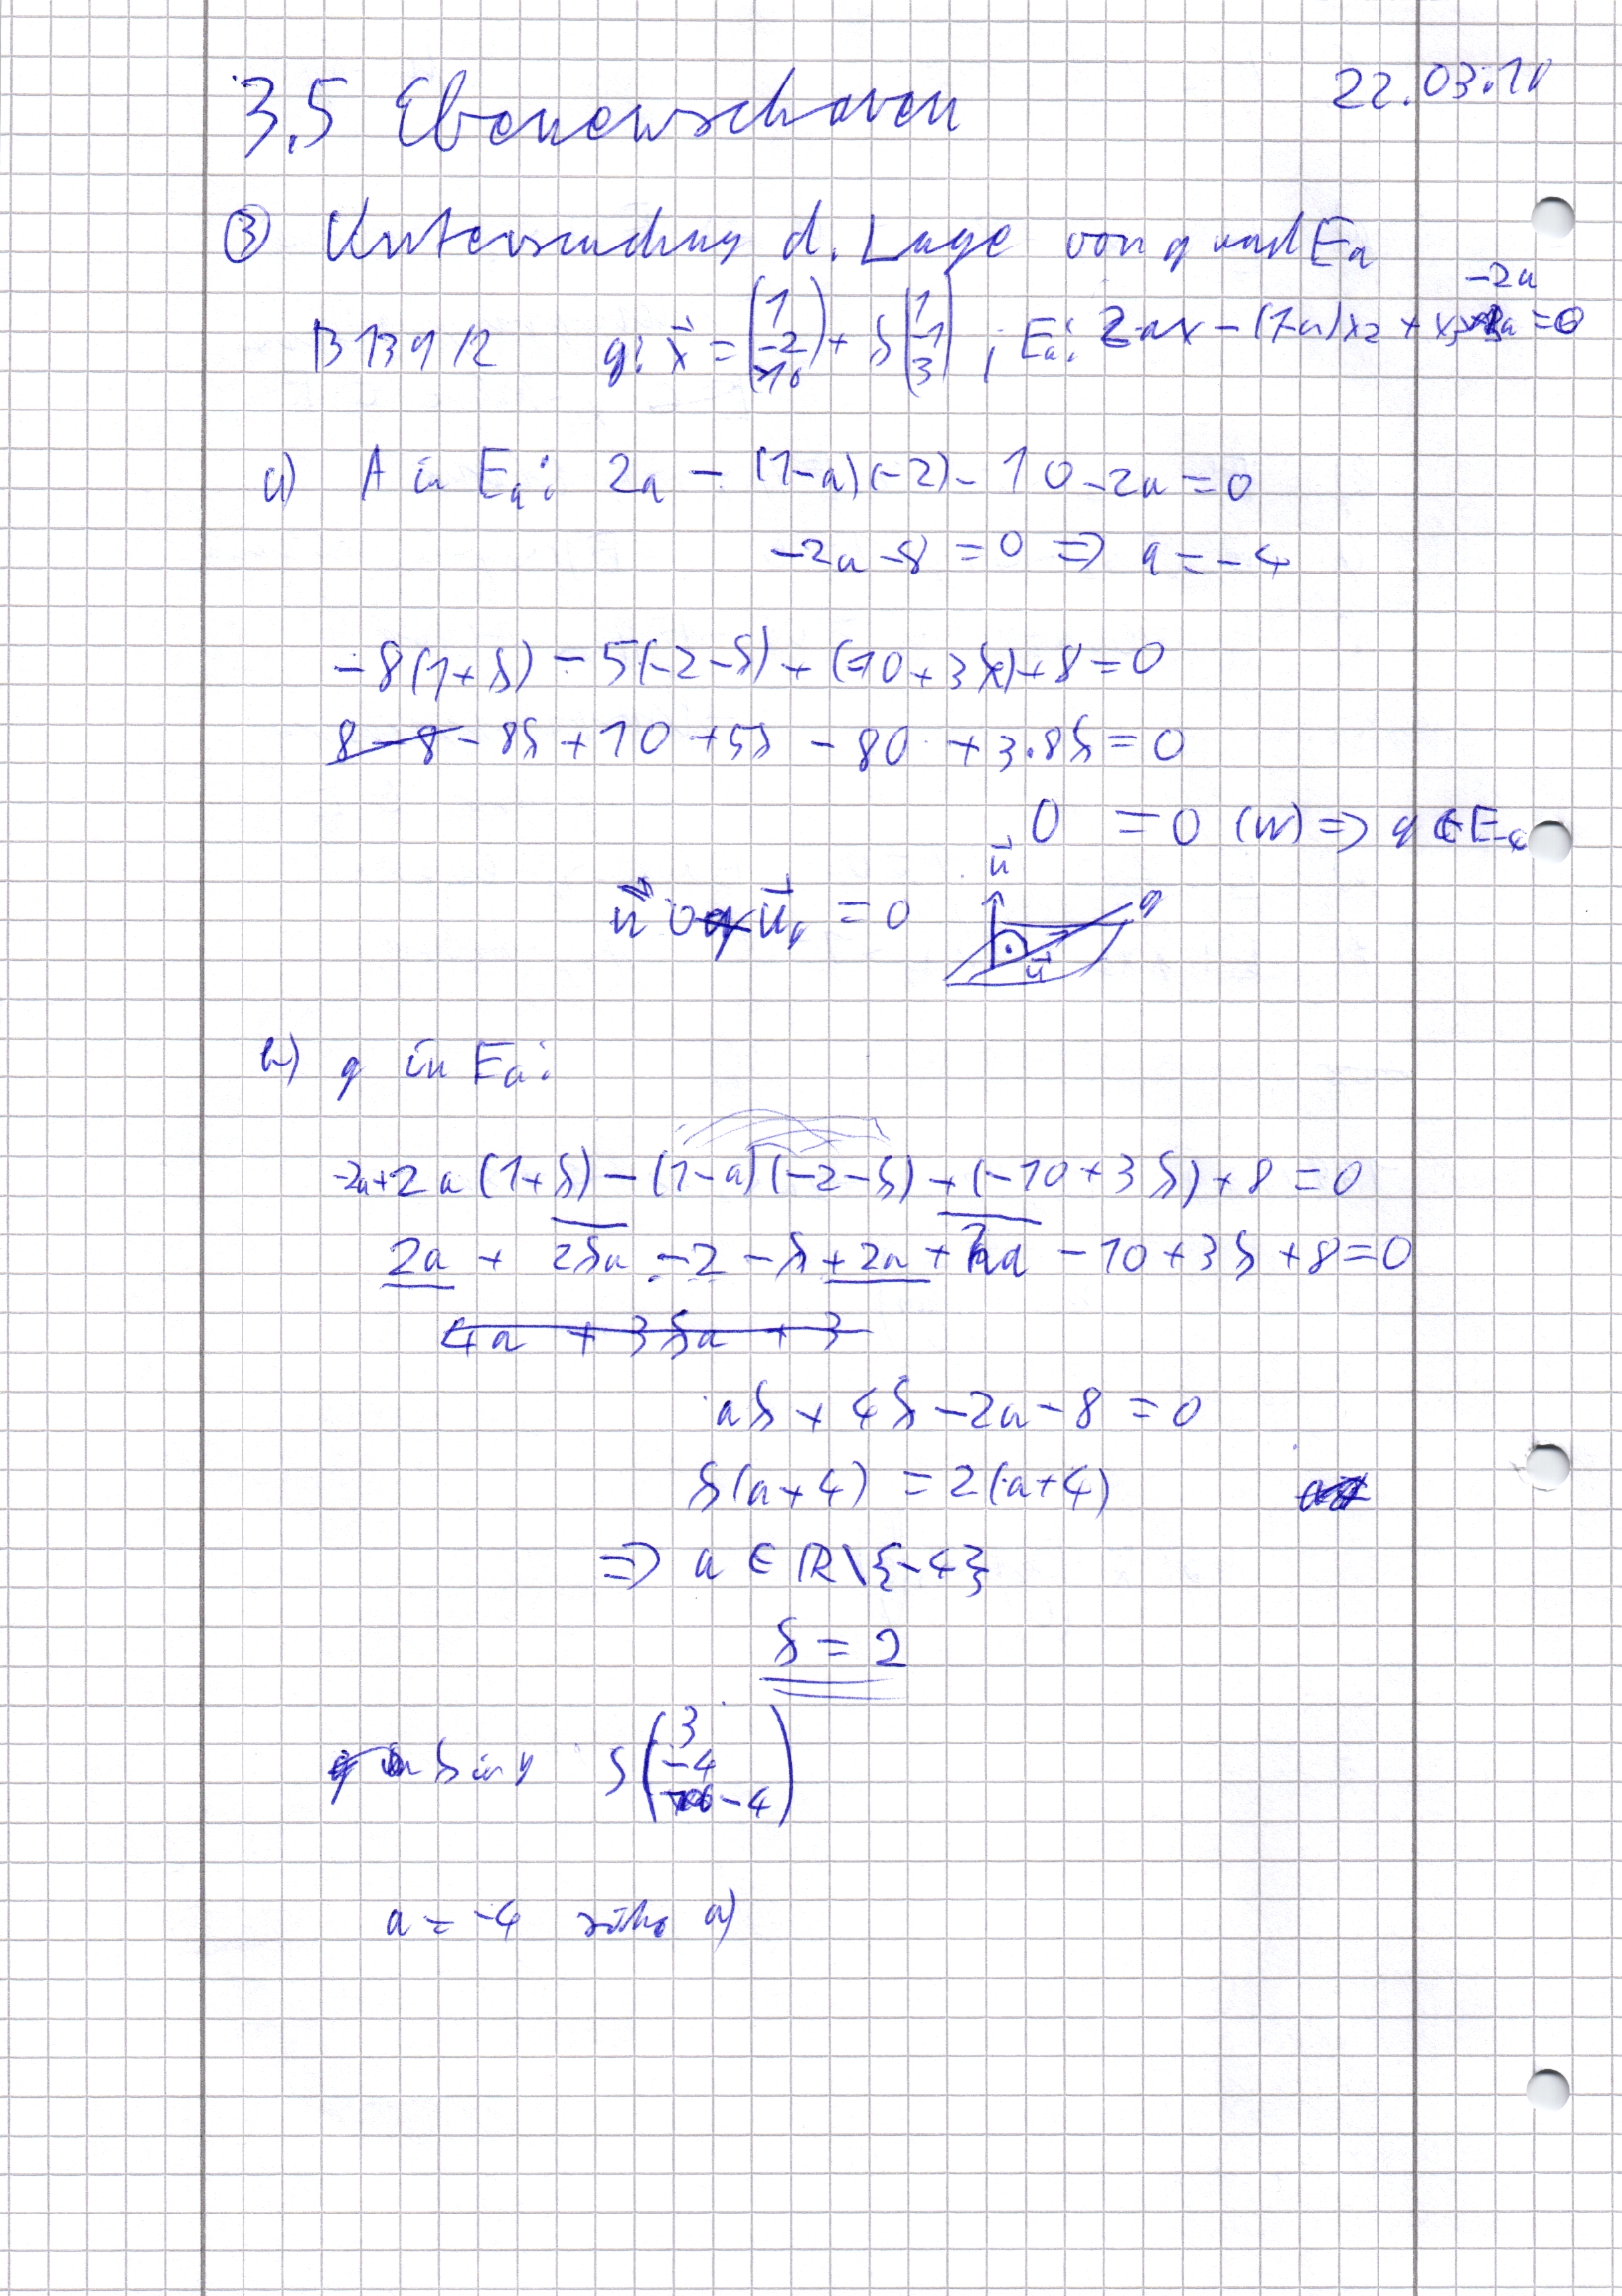 22.03.18
3.5 Ebenenscharen
③ Untersuchung d. Lage von g und Ea
-2a
B 139/2 g: x⃗ = (1 -2 -10) + s (1 -1 3) ; Ea: 2ax - (1-a)x2 + x3 = 0
a) A in Ea: 2a - (1-a)(-2) - 10 - 2a = 0
-2a - 8 = 0 ⇒ a = -4
-8(1+s) - 5(-2-s) + (-10+3s) + 8 = 0
8 - 8 - 8s + 10 + 5s - 80 + 3.8s = 0
0 = 0 (w) ⇒ g ∈ E-4
n⃗
n⃗ o u⃗g = 0 g
u⃗
b) g in Ea:
-2a + 2a(1+s) - (1-a)(-2-s) + (-10+3s) + 8 = 0
2a + 2sa - 2 - s + 2a + a - 10 + 3s + 8 = 0
4a + 3sa + 3
as + 4s - 2a - 8 = 0
s(a+4) = 2(a+4)
⇒ a ∈ ℝ\{-4}
s = 2
s in g S (3 -4 -4)
a = -4 siehe a)